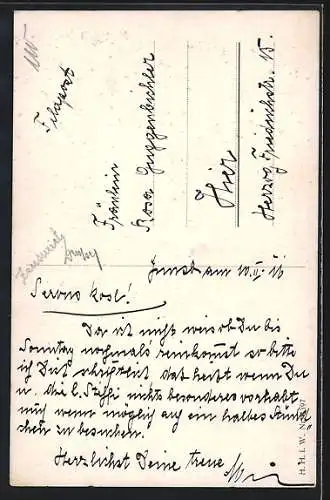 Feldpost
Fräulein
Rosa Guggenbichler
Hier
Herzog Friedrichstr. 15.
am 10. II. 16
Servus Rosl!
Da ich nicht weis ob Du bis
Sonntag nochmals reinkommst so bitte
ich Dich schriftlich das heist wenn Du
u. die l. Steffi nichts besonderes vorhabt
mich wenn möglich auf ein halbes Stünd
chen zu besuchen.
Herzlichst Deine treue
H. H. i. W. Nr.